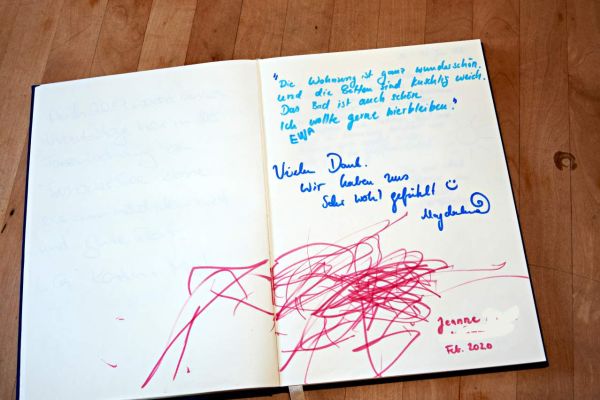 "Die Wohnung ist ganz wunderschön.
und die Betten sind kuschlig weich.
Das Bad ist auch schön
Ich wollte gerne hierbleiben."
EWA
Vielen Dank.
Wir haben uns
sehr wohl gefühlt! ☺
Magdalena
Jeanne
Feb. 2020